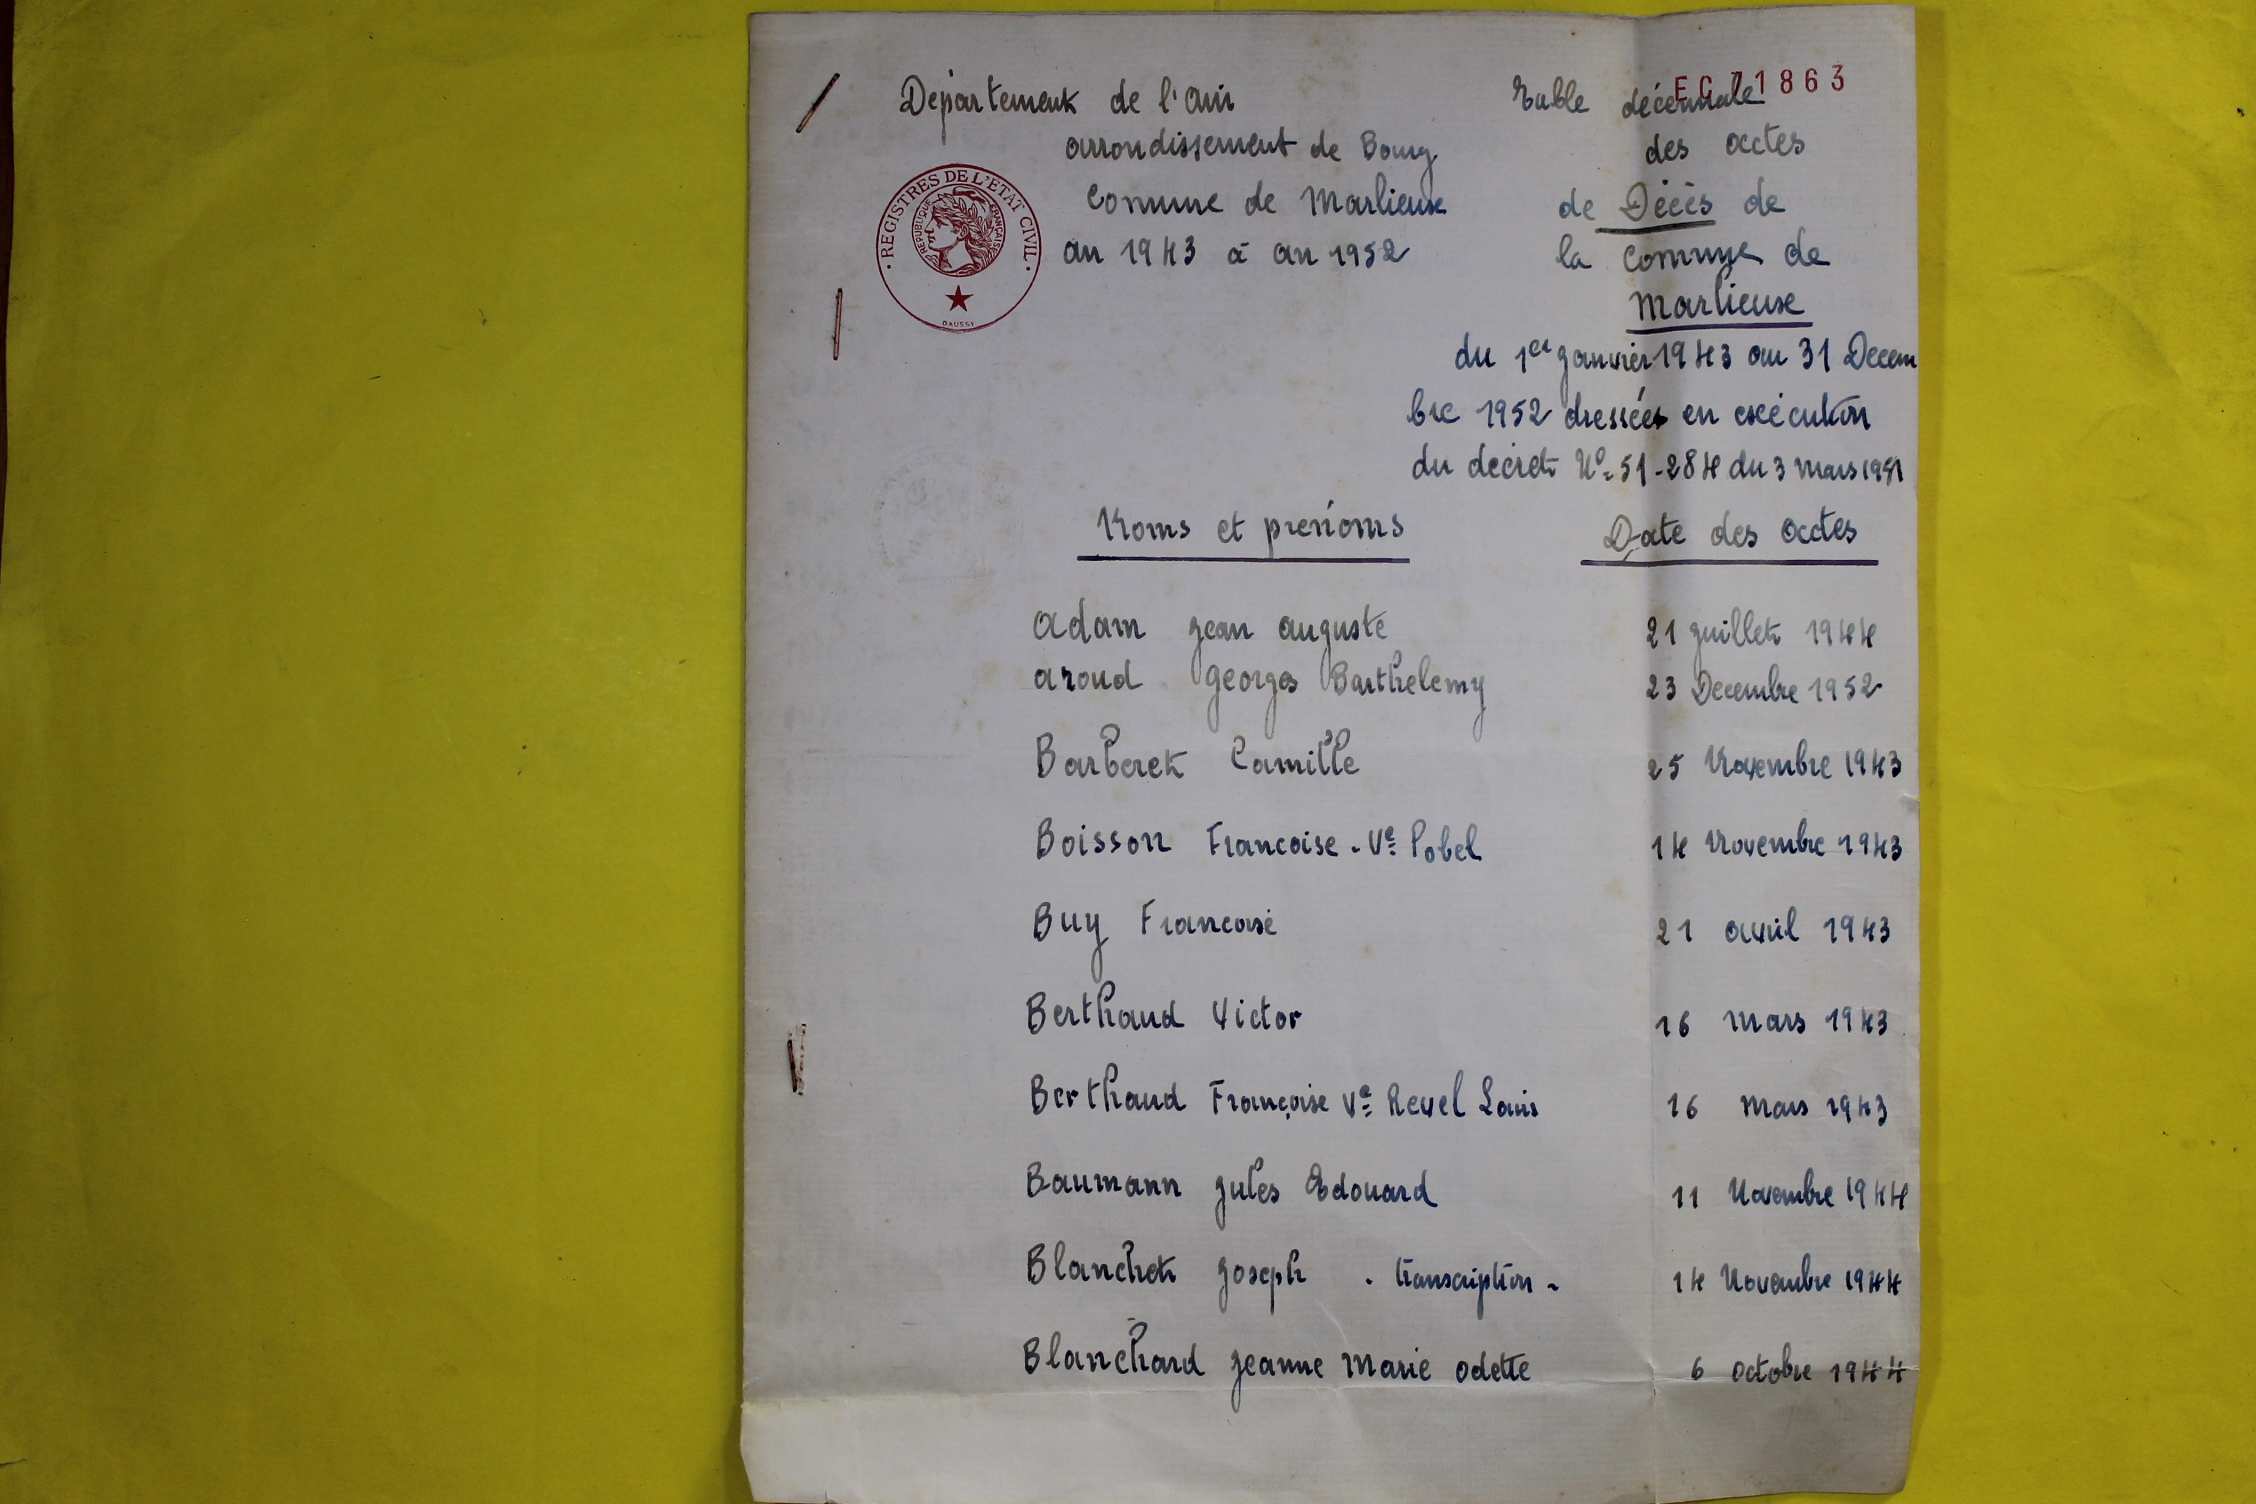 Département de l'Ain
arrondissement de Bourg
Commune de Marlieux
an 1943 à an 1952
REGISTRES DE L'ÉTAT CIVIL
RÉPUBLIQUE FRANÇAISE
DAUSSY
1863
Table décennale
des actes
de Décès de
la commune de
Marlieux
du 1er janvier 1943 au 31 Décem
bre 1952 dressées en exécution
du décret No 51-284 du 3 mars 1951
Noms et prénoms Date des actes
Adam Jean Auguste 21 Juillet 1944
Aroud Georges Barthelemy 23 Decembre 1952
Barberet Camille 25 Novembre 1943
Boisson Francoise - Ve Pobel 14 Novembre 1943
Buy Francoise 21 avril 1943
Berthaud Victor 16 mars 1943
Berthaud Françoise Ve Revel Louis 16 mars 1943
Baumann Jules Edouard 11 Novembre 1944
Blanchet Joseph - transcription - 14 Novembre 1944
Blanchard Jeanne Marie Odette 6 octobre 1944